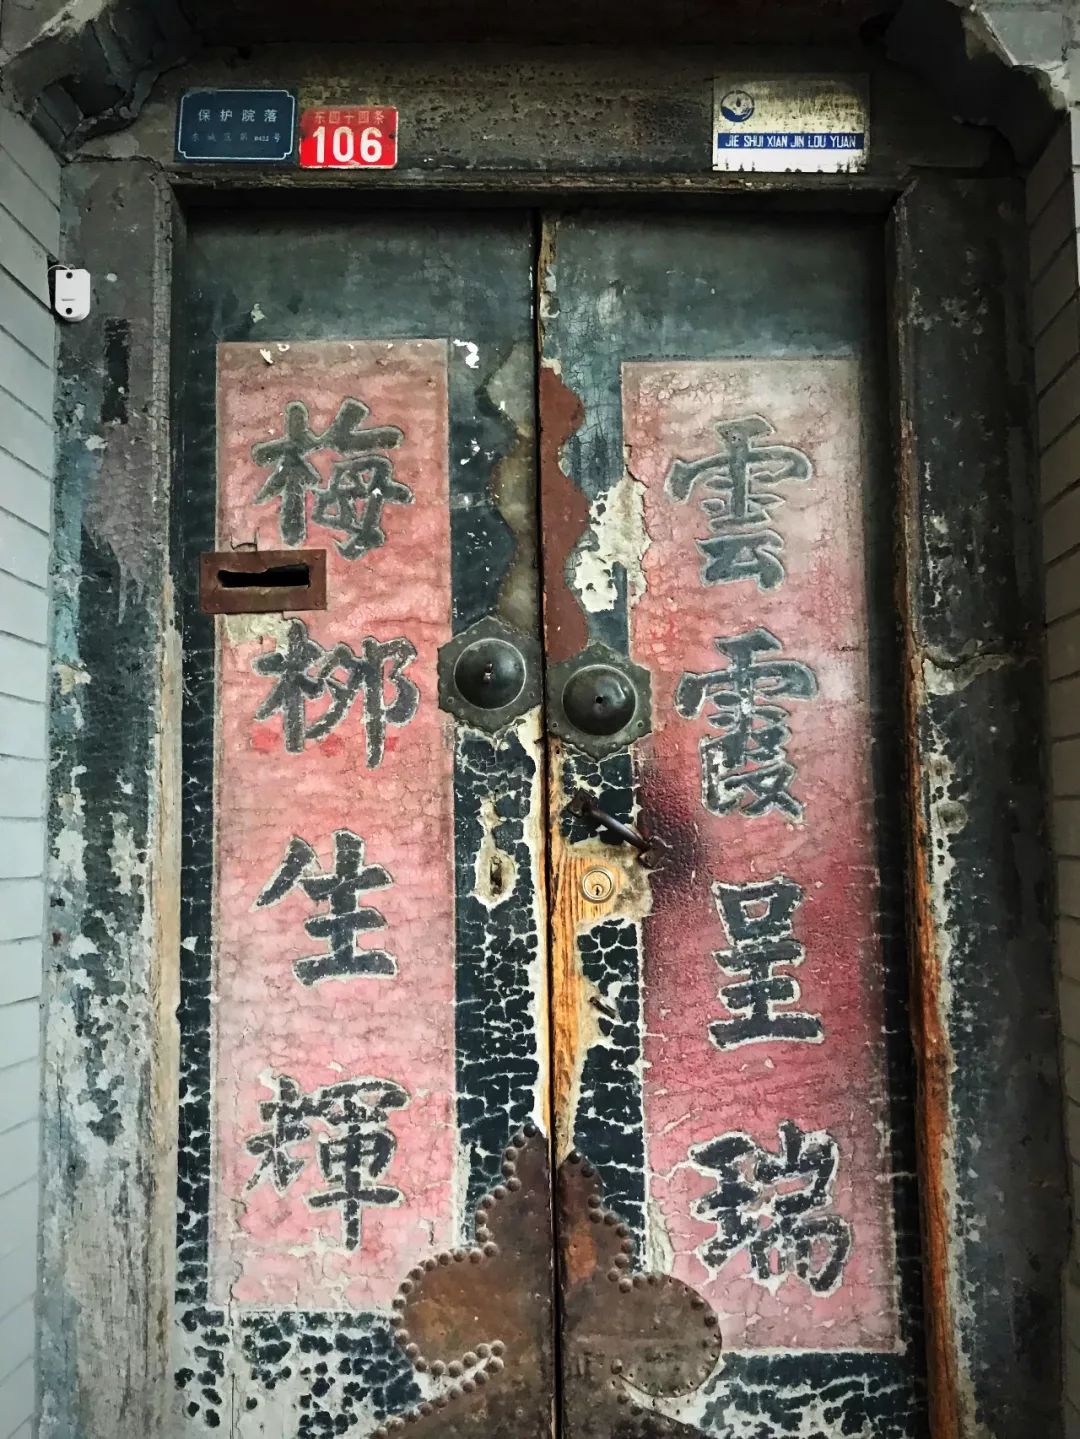 保护院落
东城区第0432号
东四十四条
106
JIE SHUI XIAN JIN LOU YUAN
雲霞呈瑞
梅柳生輝